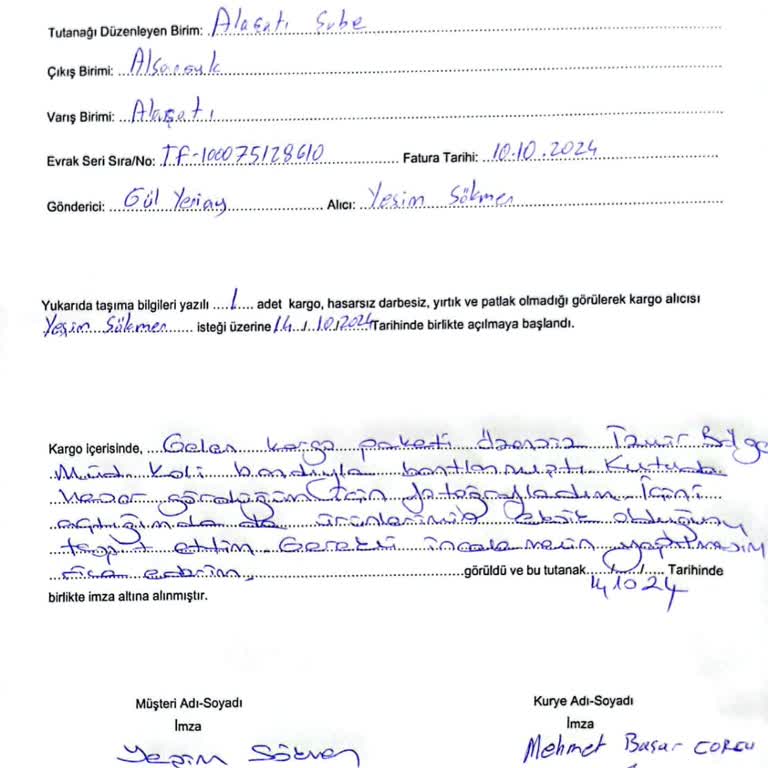 Tutanağı Düzenleyen Birim: Alaçatı Şube
Çıkış Birimi: Alsancak
Varış Birimi: Alaçatı
Evrak Seri Sıra/No: TF-100075128610 Fatura Tarihi: 10.10.2024
Gönderici: Gül Alıcı: Yeşim Sökmen
Yukarıda taşıma bilgileri yazılı 1 adet kargo, hasarsız darbesiz, yırtık ve patlak olmadığı görülerek kargo alıcısı
Yeşim Sökmen isteği üzerine 14/10/2024 Tarihinde birlikte açılmaya başlandı.
Kargo içerisinde, Gelen kargo paketi İzmir Bölge
Müd. Koli bandıyla bantlanmıştı Kutuda
Hasar gördüğüm için fotoğrafladım. İçini
açtığımda da ürünlerimin eksik olduğunu
tespit ettim. Gerekli incelemenin yapılmasını
rica ederim, görüldü ve bu tutanak 14.10.24 Tarihinde
birlikte imza altına alınmıştır.
Müşteri Adı-Soyadı Kurye Adı-Soyadı
İmza İmza
Yeşim Sökmen Mehmet Başar